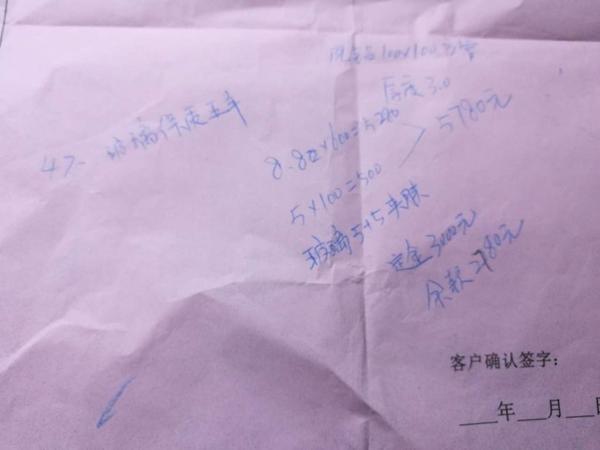 100×100方管
厚度3.0
47、玻璃保质五年
8.8×600=5280
5780元
5×100=500
玻璃5+5夹胶
定金3000元
余款2780元
客户确认签字:
___年___月___日